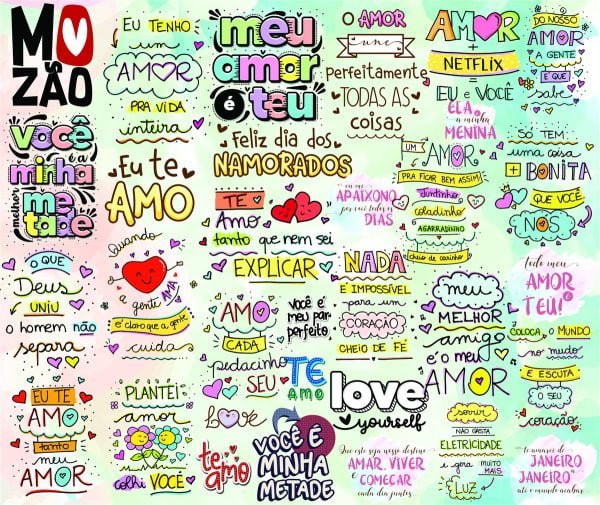 MO
ZÃO
EU TENHO
um
AMOR
PRA VIDA
inteira
meu
amor
é o teu
O AMOR
une
perfeitamente
TODAS AS
coisas
AMOR
+
NETFLIX
=
EU e VOCÊ
DO NOSSO
AMOR
A GENTE
É QUE
sabe
você
é a
minha
melhor
metade
Eu te
AMO
Feliz dia dos
NAMORADOS
ELA é
a minha
MENINA
SÓ TEM
uma coisa
+ BONITA
QUE VOCÊ
NÓS
TE
Amo
tanto que nem sei
EXPLICAR
eu me
APAIXONO
por você todos os
DIAS
UM
AMOR
PRA FICAR BEM ASSIM
juntinho
coladinho
AGARRADINHO
cheio de carinho
O QUE
Deus
UNIU
o homem não
separa
Quando
a gente AMA
é claro que a gente
cuida
AMO
CADA
pedacinho
SEU
Love
VOCÊ É
MEU PAR
PERFEITO
NADA
É IMPOSSÍVEL
para um
CORAÇÃO
CHEIO DE FÉ
meu
MELHOR
amigo
é o meu
AMOR
Todo meu
AMOR
É TEU!
COLOCA o MUNDO
no mudo
E ESCUTA
O SEU
coração
EU TE
AMO
tanto
meu
AMOR
PLANTEI
amor
colhi VOCÊ
TE
AMO
love
yourself
te
amo
VOCÊ É
MINHA
METADE
Que este seja nosso destino:
AMAR, VIVER
e COMEÇAR
cada dia juntos
sorrir
NÃO GASTA
ELETRICIDADE
e gera MUITO
MAIS
LUZ
te amarei de
JANEIRO
a JANEIRO
até o mundo acabar